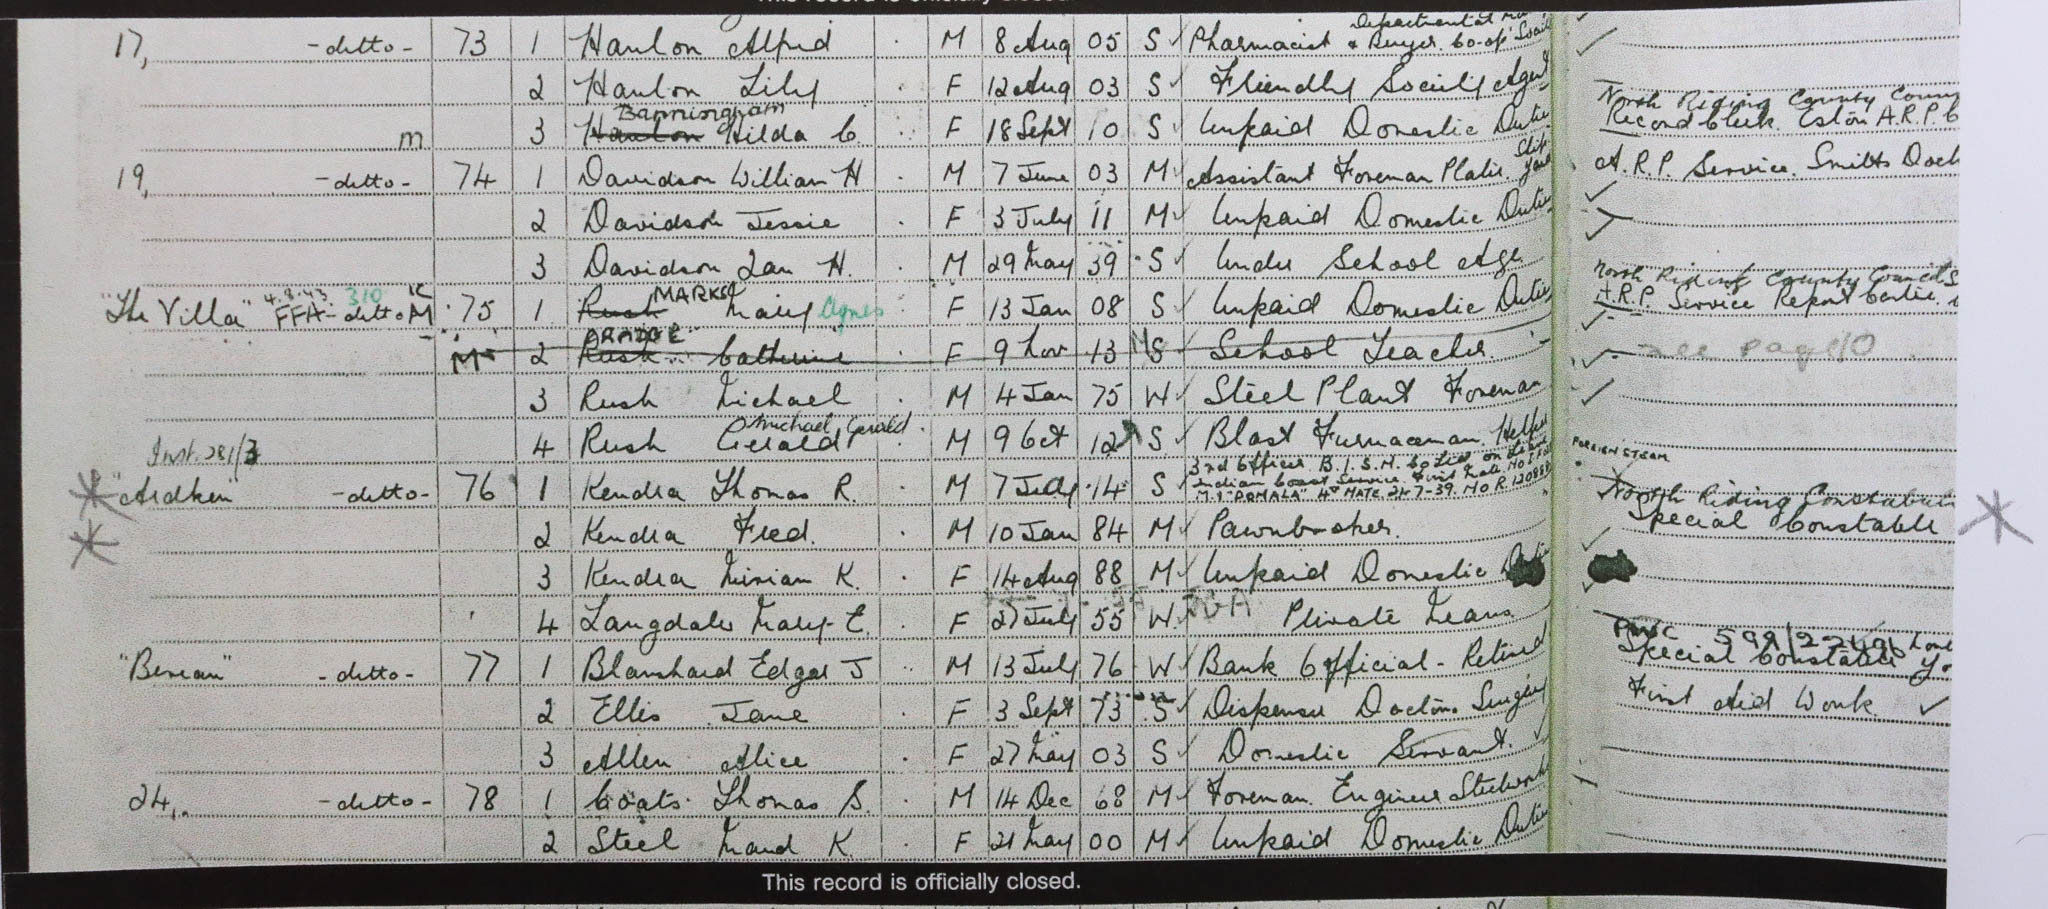 This record is officially closed.
17, -ditto- 73 1 Hanlon Alfred M 8 Aug 05 S Pharmacist & Buyer. Co-op Departmental
2 Hanlon Lily F 12 Aug 03 S Friendly Society Agent
Banningham
m 3 Hanlon Hilda C. F 18 Sept 10 S Unpaid Domestic Duties North Riding County
Record Clerk. Eston A.R.P.
19, -ditto- 74 1 Davidson William H M 7 June 03 M Assistant Foreman Plater. Ship Yard A.R.P. Service. Smiths Dock
2 Davidson Jessie F 3 July 11 M Unpaid Domestic Duties
3 Davidson Ian H. M 29 May 39 S Under School Age
4.8.43 310 MARKS North Riding County Councils
"The Villa" FFA -ditto- 75 1 Rush Mary Agnes F 13 Jan 08 S Unpaid Domestic Duties A.R.P. Service Report Centre.
M 2 Rush Catherine F 9 Nov 13 S School Teacher. see page 10
3 Rush Michael M 4 Jan 75 W Steel Plant Foreman
Michael Gerald
4 Rush Gerald M 9 Oct 12 S Blast Furnaceman. Helper
Inst. 281/3 3rd Officer B.I.S.N. Co Ltd on FOREIGN STEAM
"Ardken" -ditto- 76 1 Kendra Thomas R. M 7 July 14 S Indian Coast Service First Mate
M.S "DOMALA" 4th MATE 21-7-39. North Riding Constabulary
2 Kendra Fred. M 10 Jan 84 M Pawnbroker. Special Constable
3 Kendra Miriam K. F 14 Aug 88 M Unpaid Domestic
4 Langdale Mary E. F 27 July 55 W Private Means
"Benan" -ditto- 77 1 Blanshard Edgar J M 13 July 76 W Bank Official - Retired Special Constable
2 Ellis Jane F 3 Sept 73 S Dispenser Doctors Surgery First Aid Work
3 Allen Alice F 27 May 03 S Domestic Servant.
24, -ditto- 78 1 Coats Thomas S. M 14 Dec 68 M Foreman Engineer Steelworks
2 Steel Maud K. F 21 May 00 M Unpaid Domestic Duties
This record is officially closed.